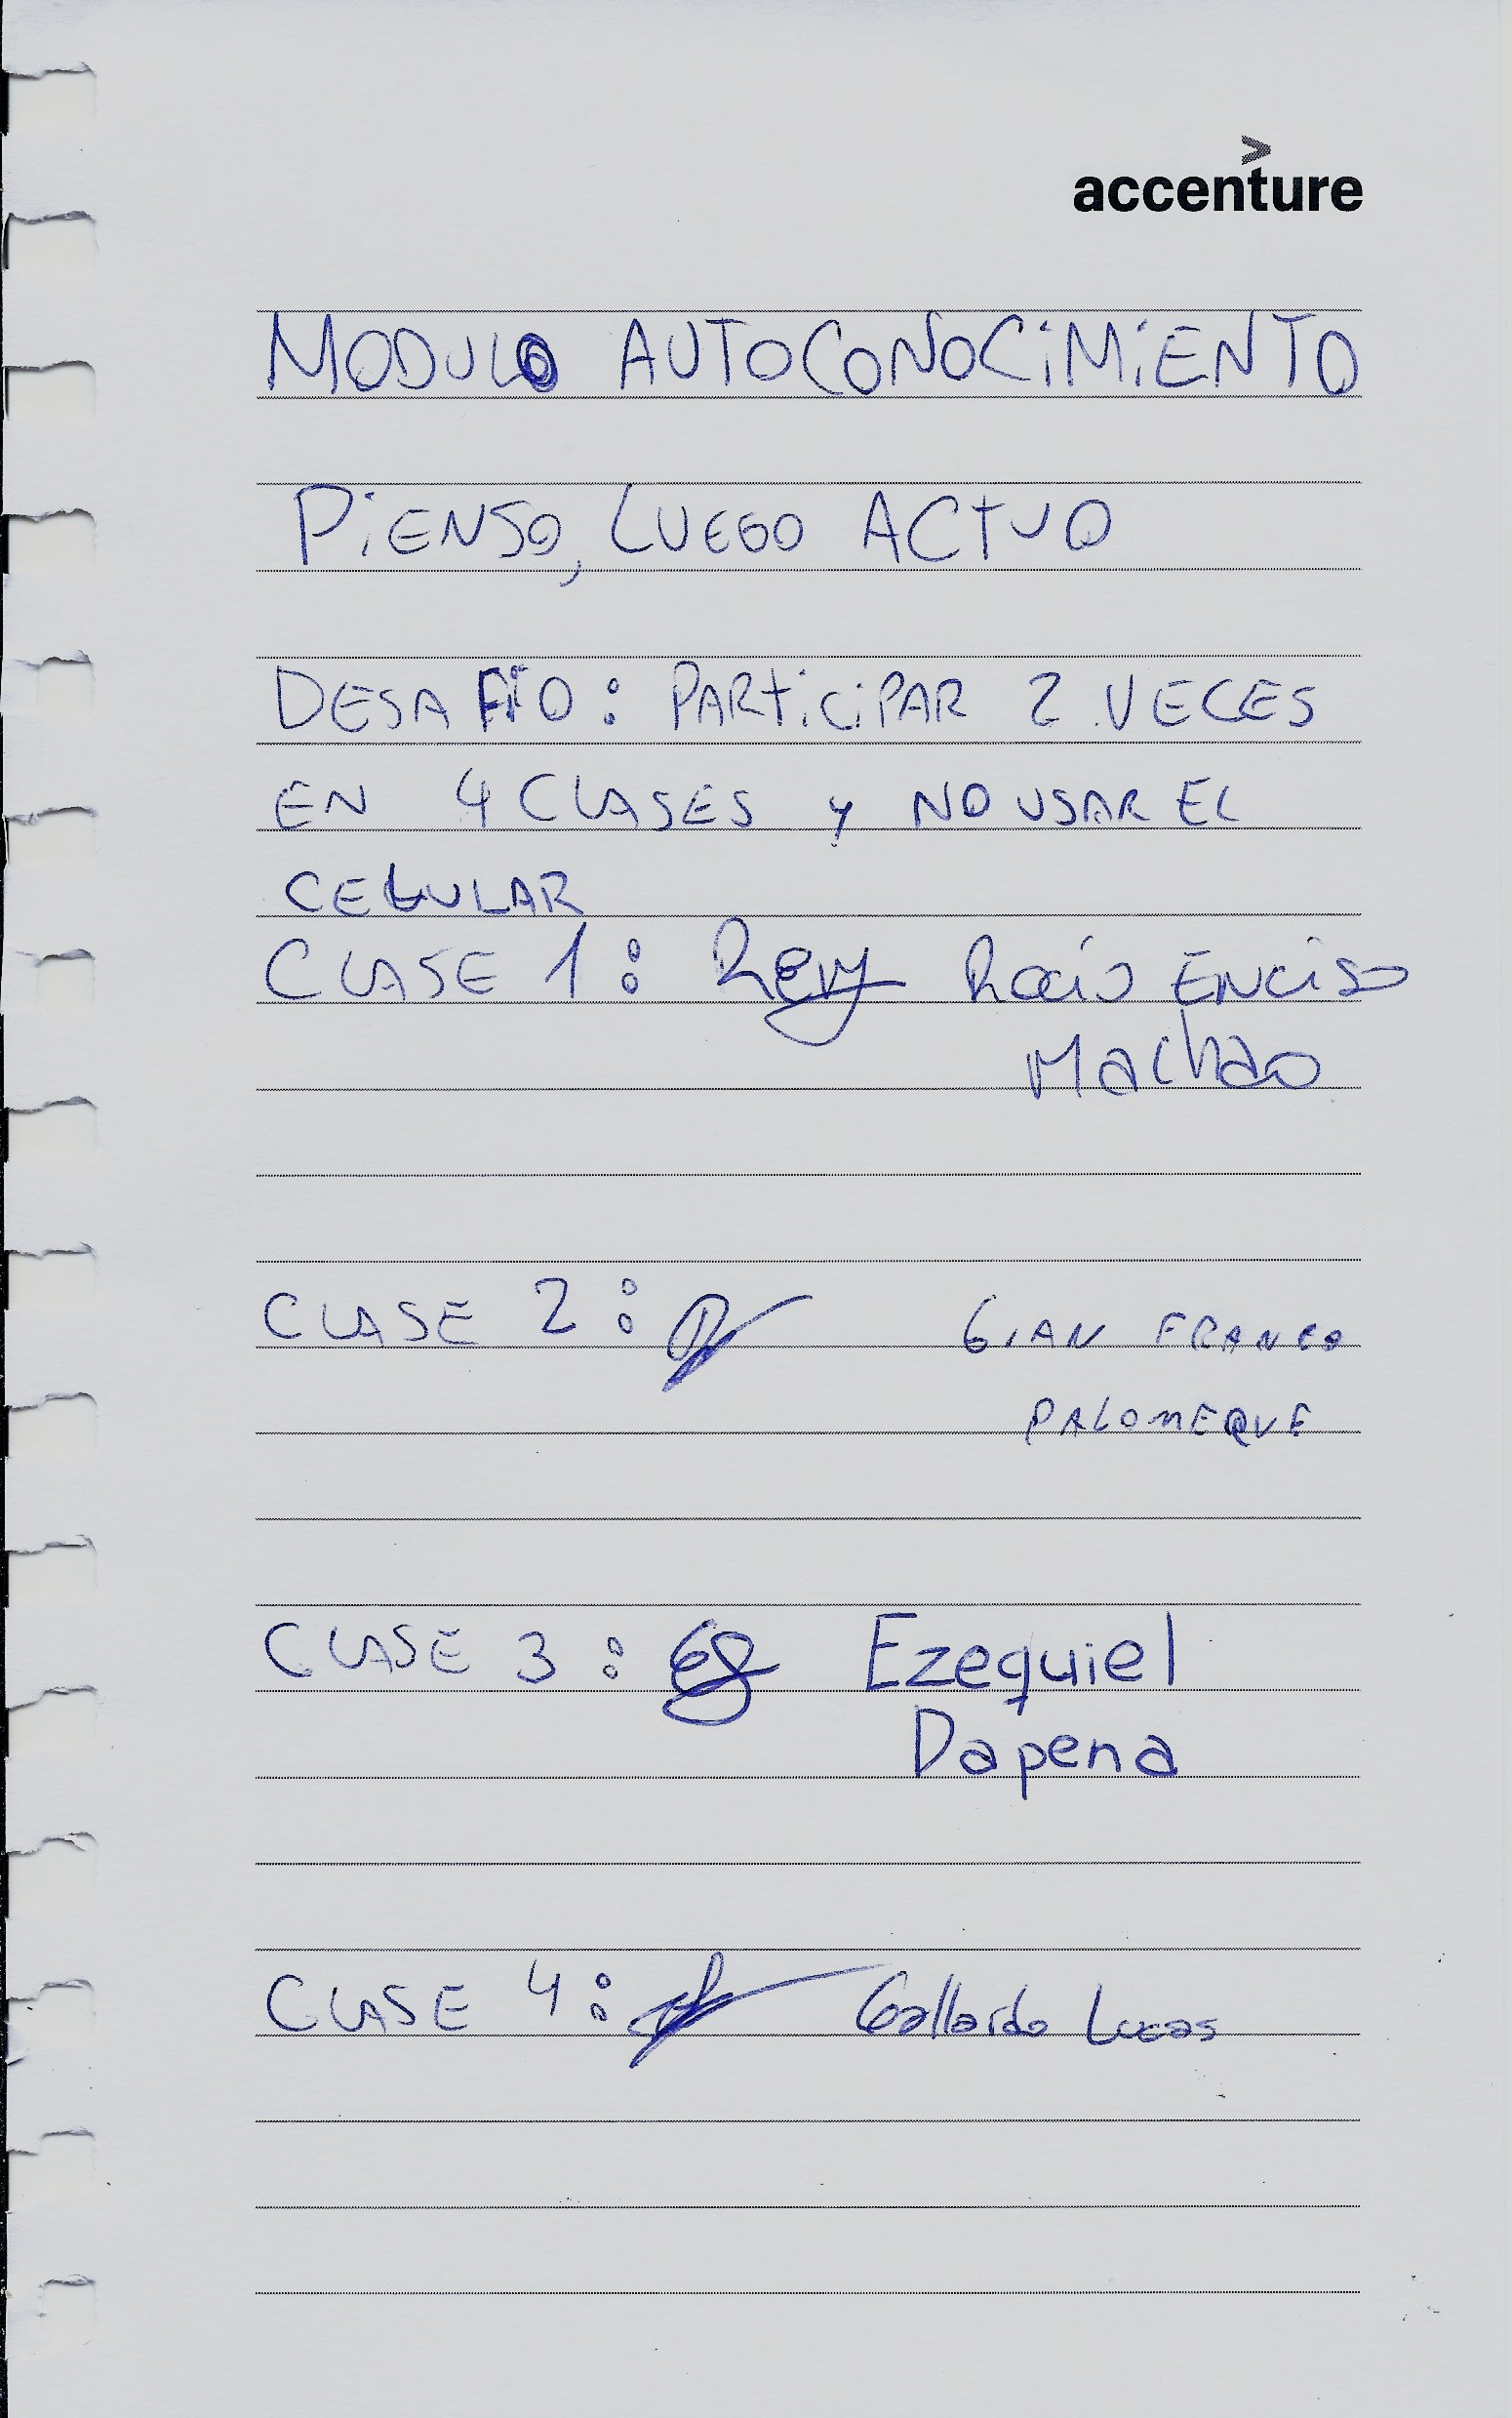 accenture
MODULO AUTOCONOCIMIENTO
PIENSO, LUEGO ACTUO
DESAFIO: PARTICIPAR 2 VECES
EN 4 CLASES Y NO USAR EL
CELULAR
CLASE 1: Rocio ENCISO
Machao
CLASE 2: GIAN FRANCO
PALOMEQUE
CLASE 3: Ezequiel
Dapena
CLASE 4: Gallardo Lucas